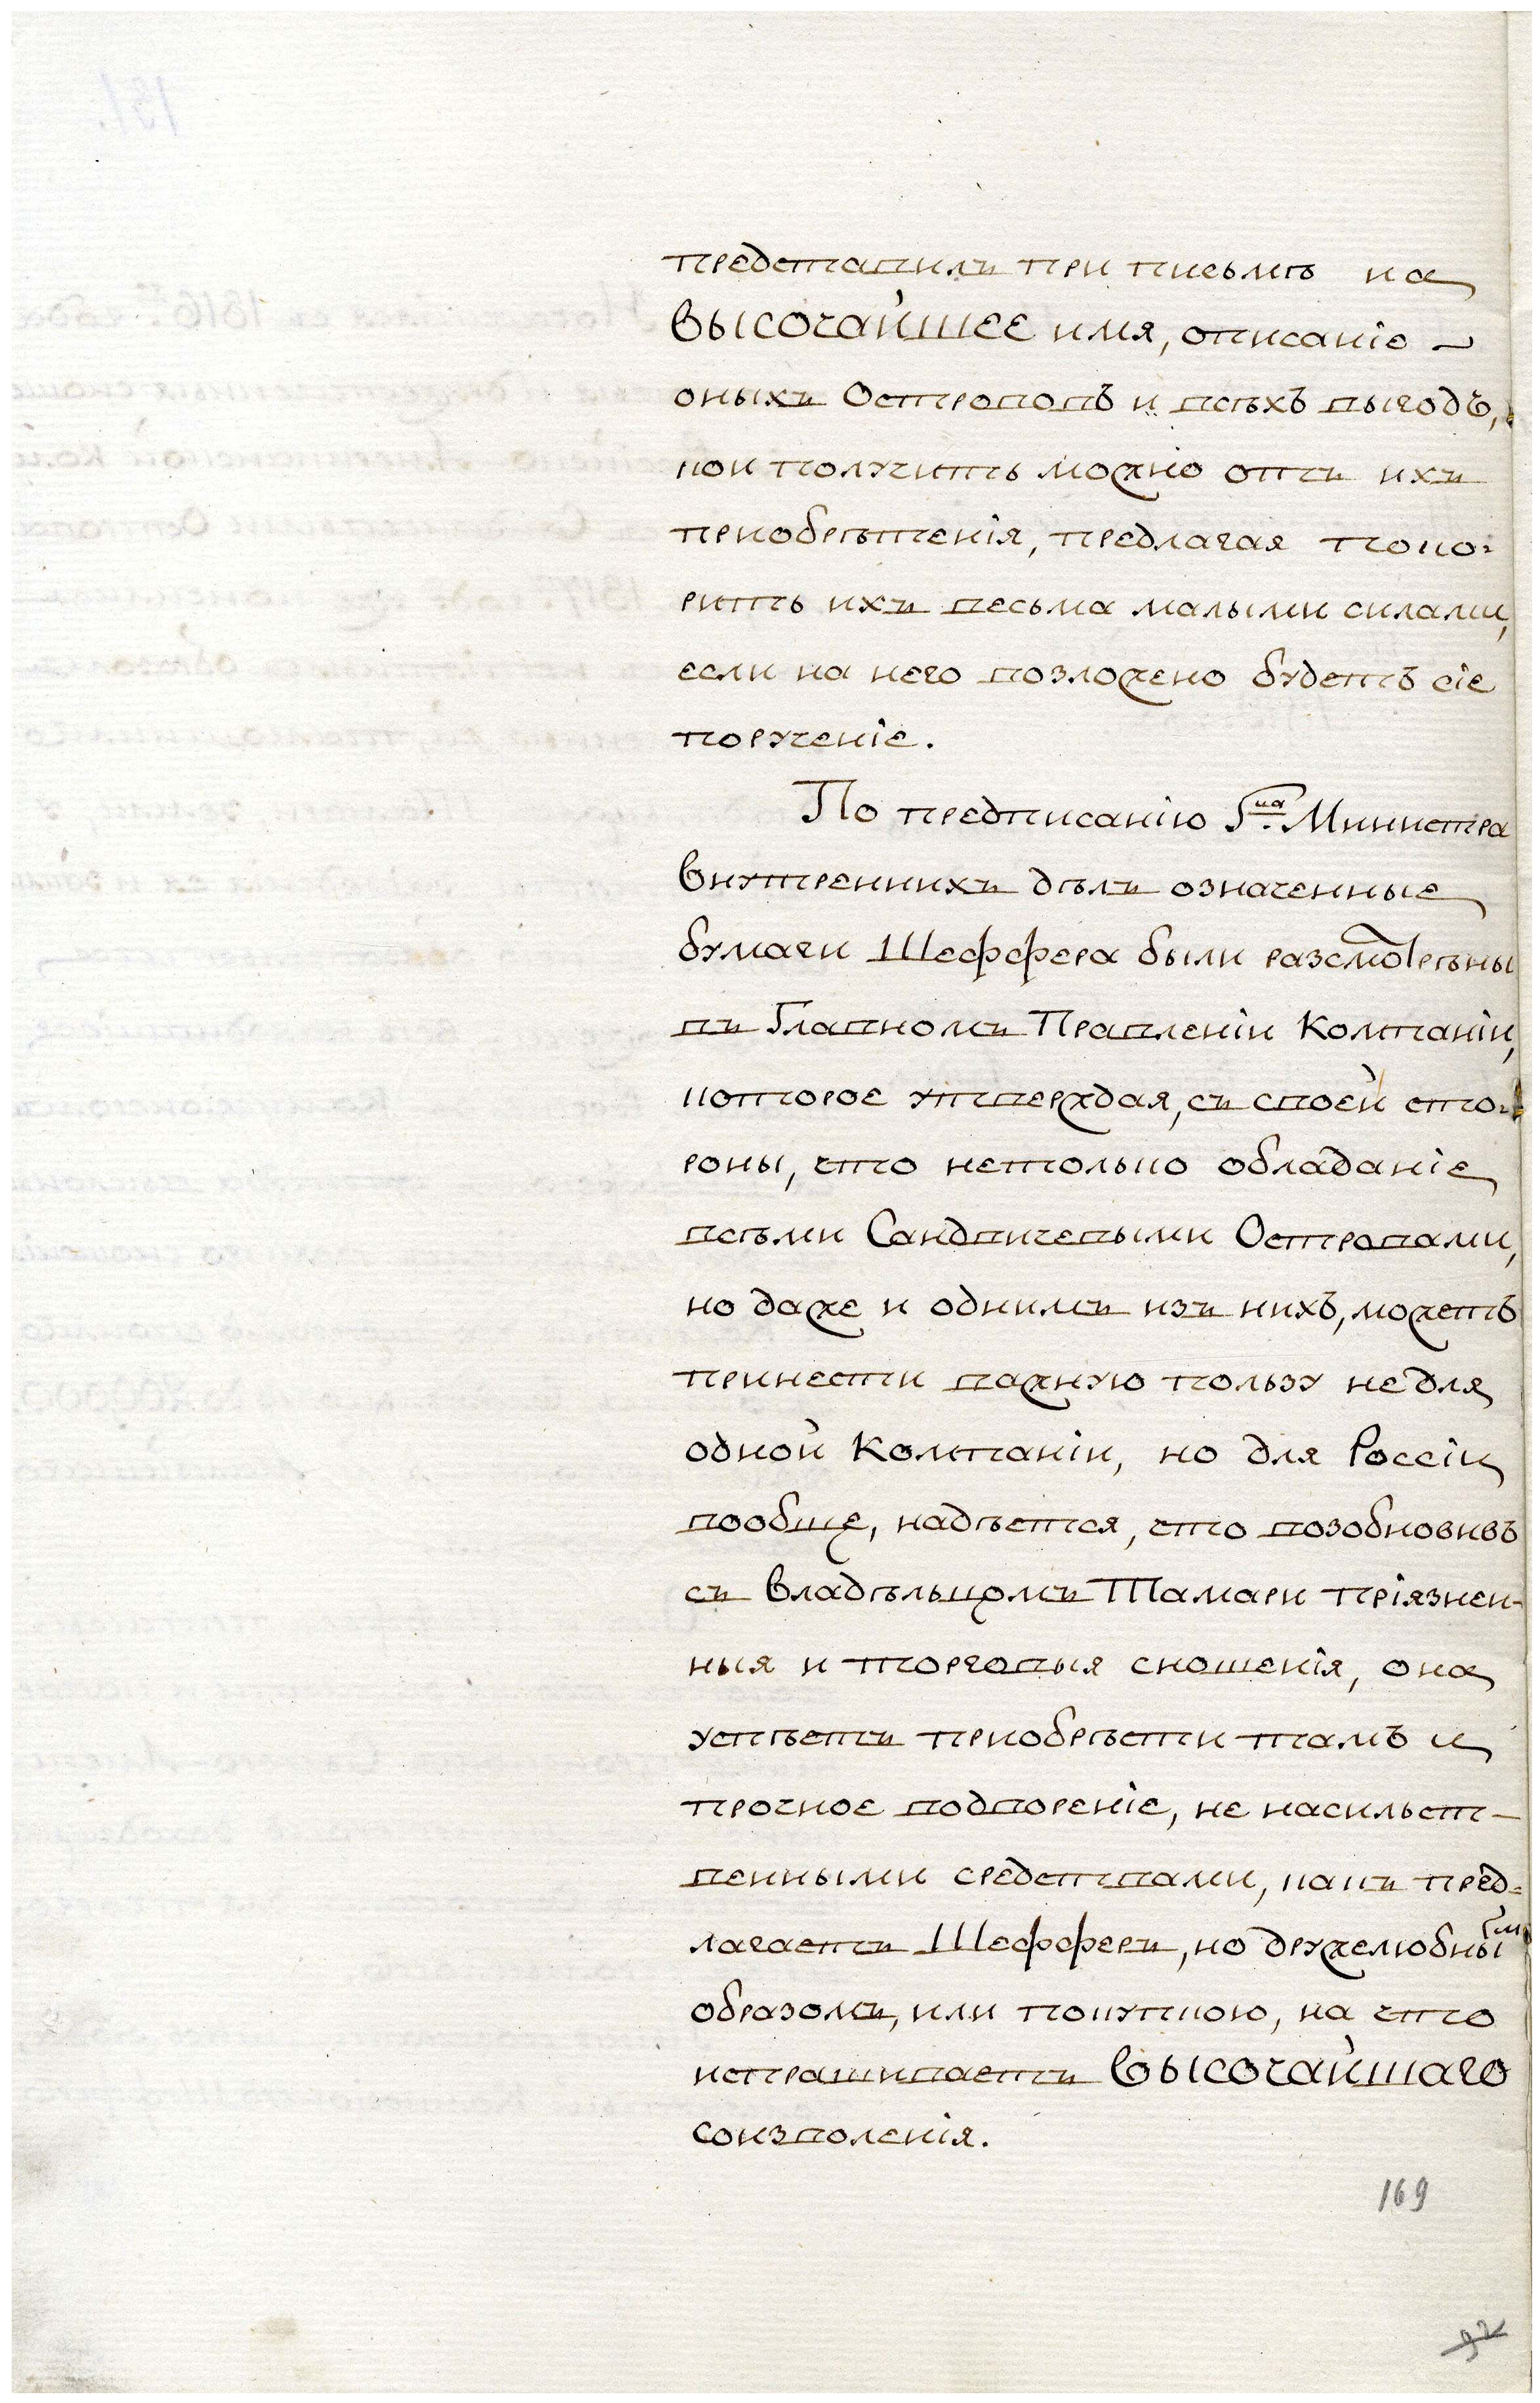 представилъ при письмѣ на
ВЫСОЧАЙШЕЕ имя, описаніе
оныхъ Острововъ и всѣхъ выгодъ,
кои получить можно отъ ихъ
приобрѣтенія, предлагая поко-
рить ихъ весьма малыми силами,
если на него возложено будетъ сіе
порученіе.
По предписанію Гна Министра
Внутреннихъ дѣлъ означенные
бумаги Шеффера были разсмотрѣны
въ Главномъ Правленіи Компаніи,
которое утверждая, съ своей сто-
роны, что нетолько обладаніе
всѣми Сандвичевыми Островами,
но даже и однимъ изъ нихъ, можетъ
принести важную пользу не для
одной Компаніи, но для Россіи
вообще, надѣется, что возобновивъ
съ Владѣльцомъ Тамари пріязнен-
ныя и торговыя сношенія, она
успѣетъ приобрѣсти тамъ и
прочное водвореніе, не насильст-
венными средствами, какъ пред-
лагаетъ Шефферъ, но дружелюбнымъ
образомъ, или покупкою, на что
испрашиваетъ ВЫСОЧАЙШАГО
соизволенія.
169